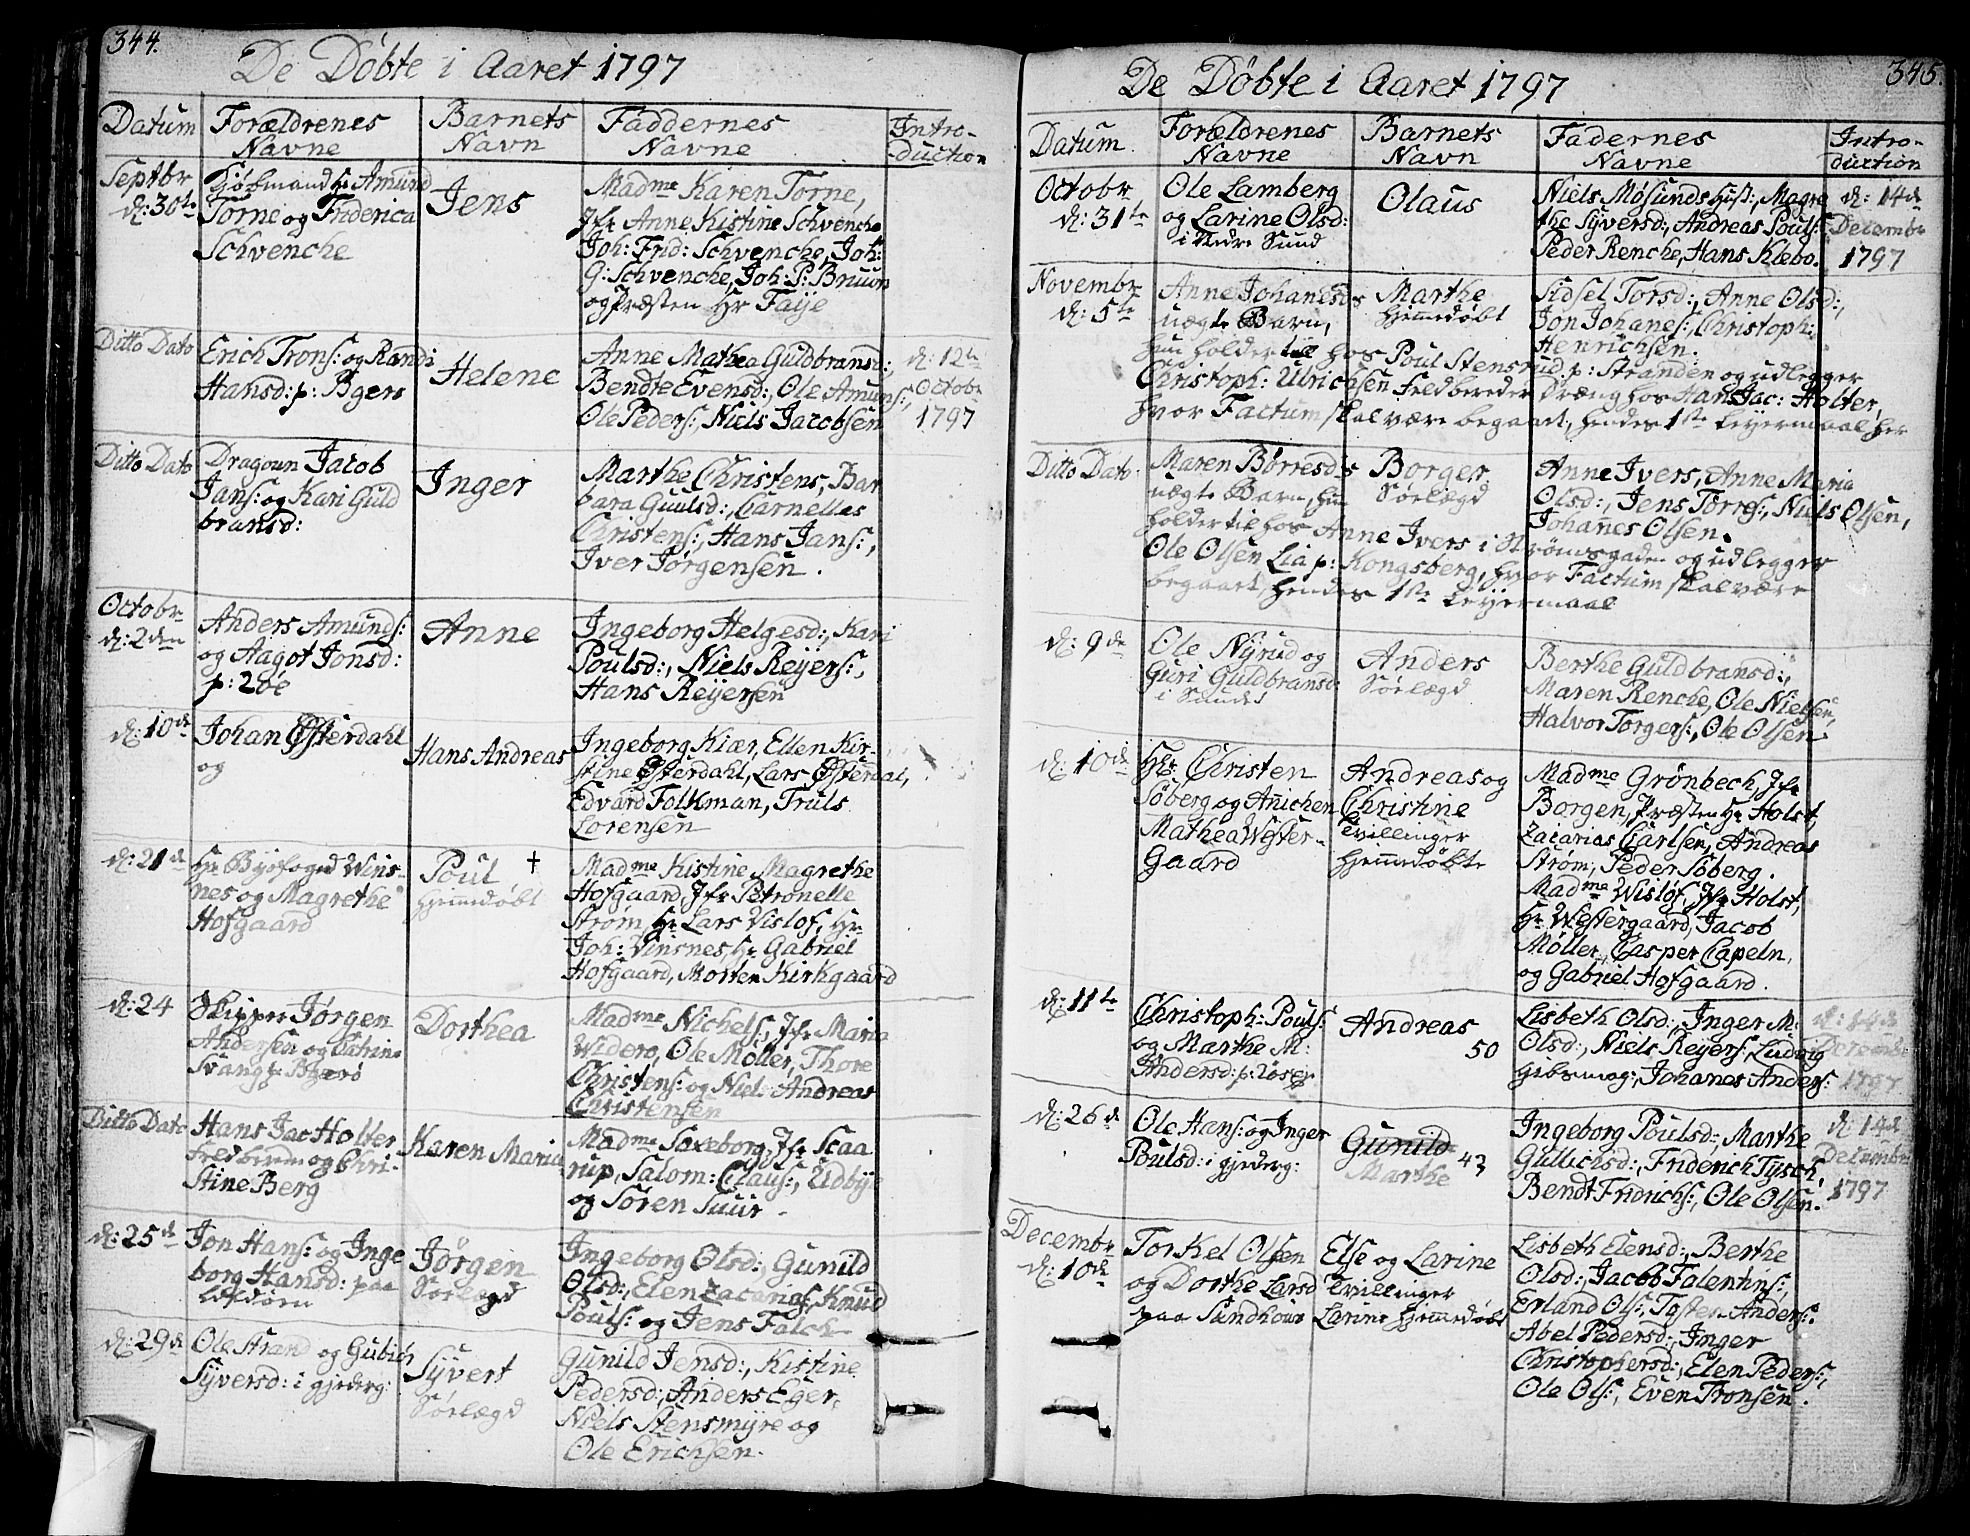 344.
De Döbte i Aaret 1797
Datum
Forældrenes
Navne
Barnets
Navn
Faddernes
Navne
Intro-
duction
Septbr
d: 30te
Kjøbmand Hr Amund
Torne og Friderica
Schvenche
Jens
Madme Karen Torne,
Jfr Anne Kistine Schvenche
Joh: Frid: Schvenche, Joh:
G: Schvenche, Joh: P: Bruun
og Præsten Hr Faije
Ditto Dato
Erich Trons: og Randi
Hansd: p:
Helene
Anne Mathea Guldbransd:,
Bendte Evensd:, Ole Amuns:,
Ole Peders:, Niels Jacobsen
d: 12te
Octobr
1797
Ditto Dato
Dragoun Jacob
Jans: og Kari Guld
bransd:
Inger
Marthe Christens, Bar
bara Guulsd:, Carnelles
Christens:, Hans Jans:,
Iver Jørgensen.
Octobr
d: 2den
Anders Amunds:
og Aagot Jonsd:
p: 2öe
Anne
Ingeborg Helgesd:, Kari
Poulsd:, Niels Reyers:,
Hans Reyersen
d: 10de
Johan Østerdahl
og
Hans Andreas
Ingeborg Kiær, Ellen Kir-
stine Østerdahl, Lars Østerdal,
Edvard Folkman, Truls
Sorensen
d: 21de
Hr Byefoged Wins-
nes og Magrethe
Hofgaard
Poul †
Hjemmedöbt
Madme Kistine Magrethe
Hofgaard, Jfr Petronelle
Strøm, Hr Lars Vislof, Hr
Joh: Vinsnes, Hr Gabriel
Hofgaard, Morten Kirkgaard
d: 24
Skipper Jørgen
Andersen og Catrine
Svang
Dorthea
Madme Nichels:, Jfr Maria
Widerö, Ole Møller, Thore
Christens: og Niels Andreas
Christensen
Ditto Dato
Hans Jac Holter
Feldbereder og Chri-
stine Berg
Karen Maria
Madme Saxeborg, Jfr Scaa
rup, Salom: Claus:, Udbye
og Sören Suur.
d: 25de
Jon Hans: og Inge
borg Hansd: paa
Jörgen
Sørlægd
Ingeborg Olsd:, Gunild
Olsd:, Elen Zacarias:, Knud
Pouls: og Jens Falch
d: 29de
Ole Strand og Gubiör
Syversd: i gjederg:
Syvert
Sörlægd
Gunild Jensd:, Kistine
Pedersd:, Anders Eger,
Niels Stensmyre og
Ole Erichsen.
345.
De Døbte i Aaret 1797
Datum
Forældrenes
Navne
Barnets
Navn
Fadernes
Navne
Intro-
duction
Octobr
d: 31te
Ole Lamberg
og Larine Olsd:
i Nedre Sund
Olaus
Niels Møsunds Hust:, Magre
the Syversd:, Andreas Pouls:,
Peder Renche, Hans Klebo.
d: 14de
Decembr
1797
Novembr
d: 5te
Anne Johanesd's
uægte Barn,
Marthe
Hjemmedøbt
Sidsel Torsd:, Anne Olsd:,
Jon Johanes:, Christoph:
Henrichsen.
hun holder till hos Poul Stensrud p: Stranden og udlegger
Christoph: Ulrichsen Feldbereder Dræng hos Hans Jac: Holter,
hvor Factum skal være begaaet, hendes 1ste Leyermaal her
Ditto Dato
Maren Børresd's
uægte Barn, hun
Borger
Sörlægd
Anne Ivers, Anne Maria
Olsd:, Jens Torres:, Niels Olsen,
Johanes Olsen.
holder til hos Anne Ivers i Strømsgaden og udlegger
Ole Olsen Lia p: Kongsberg, hvor Factum skal være
begaaet, hendes 1ste Leyermaal
d: 9de
Ole Nyrud og
Guri Guldbransd:
i Sundet
Anders
Sørlægd
Berthe Guldbransd:,
Maren Renche, Ole Nielsen,
Halvor Torgers:, Ole Olsen
d: 10de
Hr Christen
Søberg og Anichen
Mathea Wester-
Gaard
Andreas og
Christine
Tvillinger
Hjemmedøbte
Madme Grönbech, Jfr
Borgen, Præsten Hr Holst,
Zacarias Carlsen, Andreas
Strøm, Peder Søberg.
Madme Wisløf, Jfr Holst,
Hr Westergaard, Jacob
Möller, Casper Capeln,
og Gabriel Hofgaard.
d: 11te
Christoph: Pouls:
og Marthe M:
Andersd: p:
Andreas
50
Lisbeth Olsd:, Inger M:
Olsd:, Niels Reyers: Ludvig
gebsmog:, Johanes Anders:
d: 14de
Decembr
1797
d: 26de
Ole Hans: og Inger
Poulsd: i gjederg:
Gunild
Marthe
43
Ingeborg Poulsd:, Marthe
Gullichsd:, Friderich Tysch,
Bendt Fridrichs:, Ole Olsen.
d: 14de
Decembr
1797
Decembr
d: 10de
Torkel Olsen
og Dorthe Larsd
paa Sundhoug
Else og Larine
Tvillinger
Larine Hjemmedøbt
Lisbeth Elensd:, Berthe
Olsd:, Jacob Falentins:,
Erland Ols:, Tosten Anders:.
Abel Pedersd:, Inger
Christophersd:, Elen Peders:,
Ole Ols:, Even Tronsen.